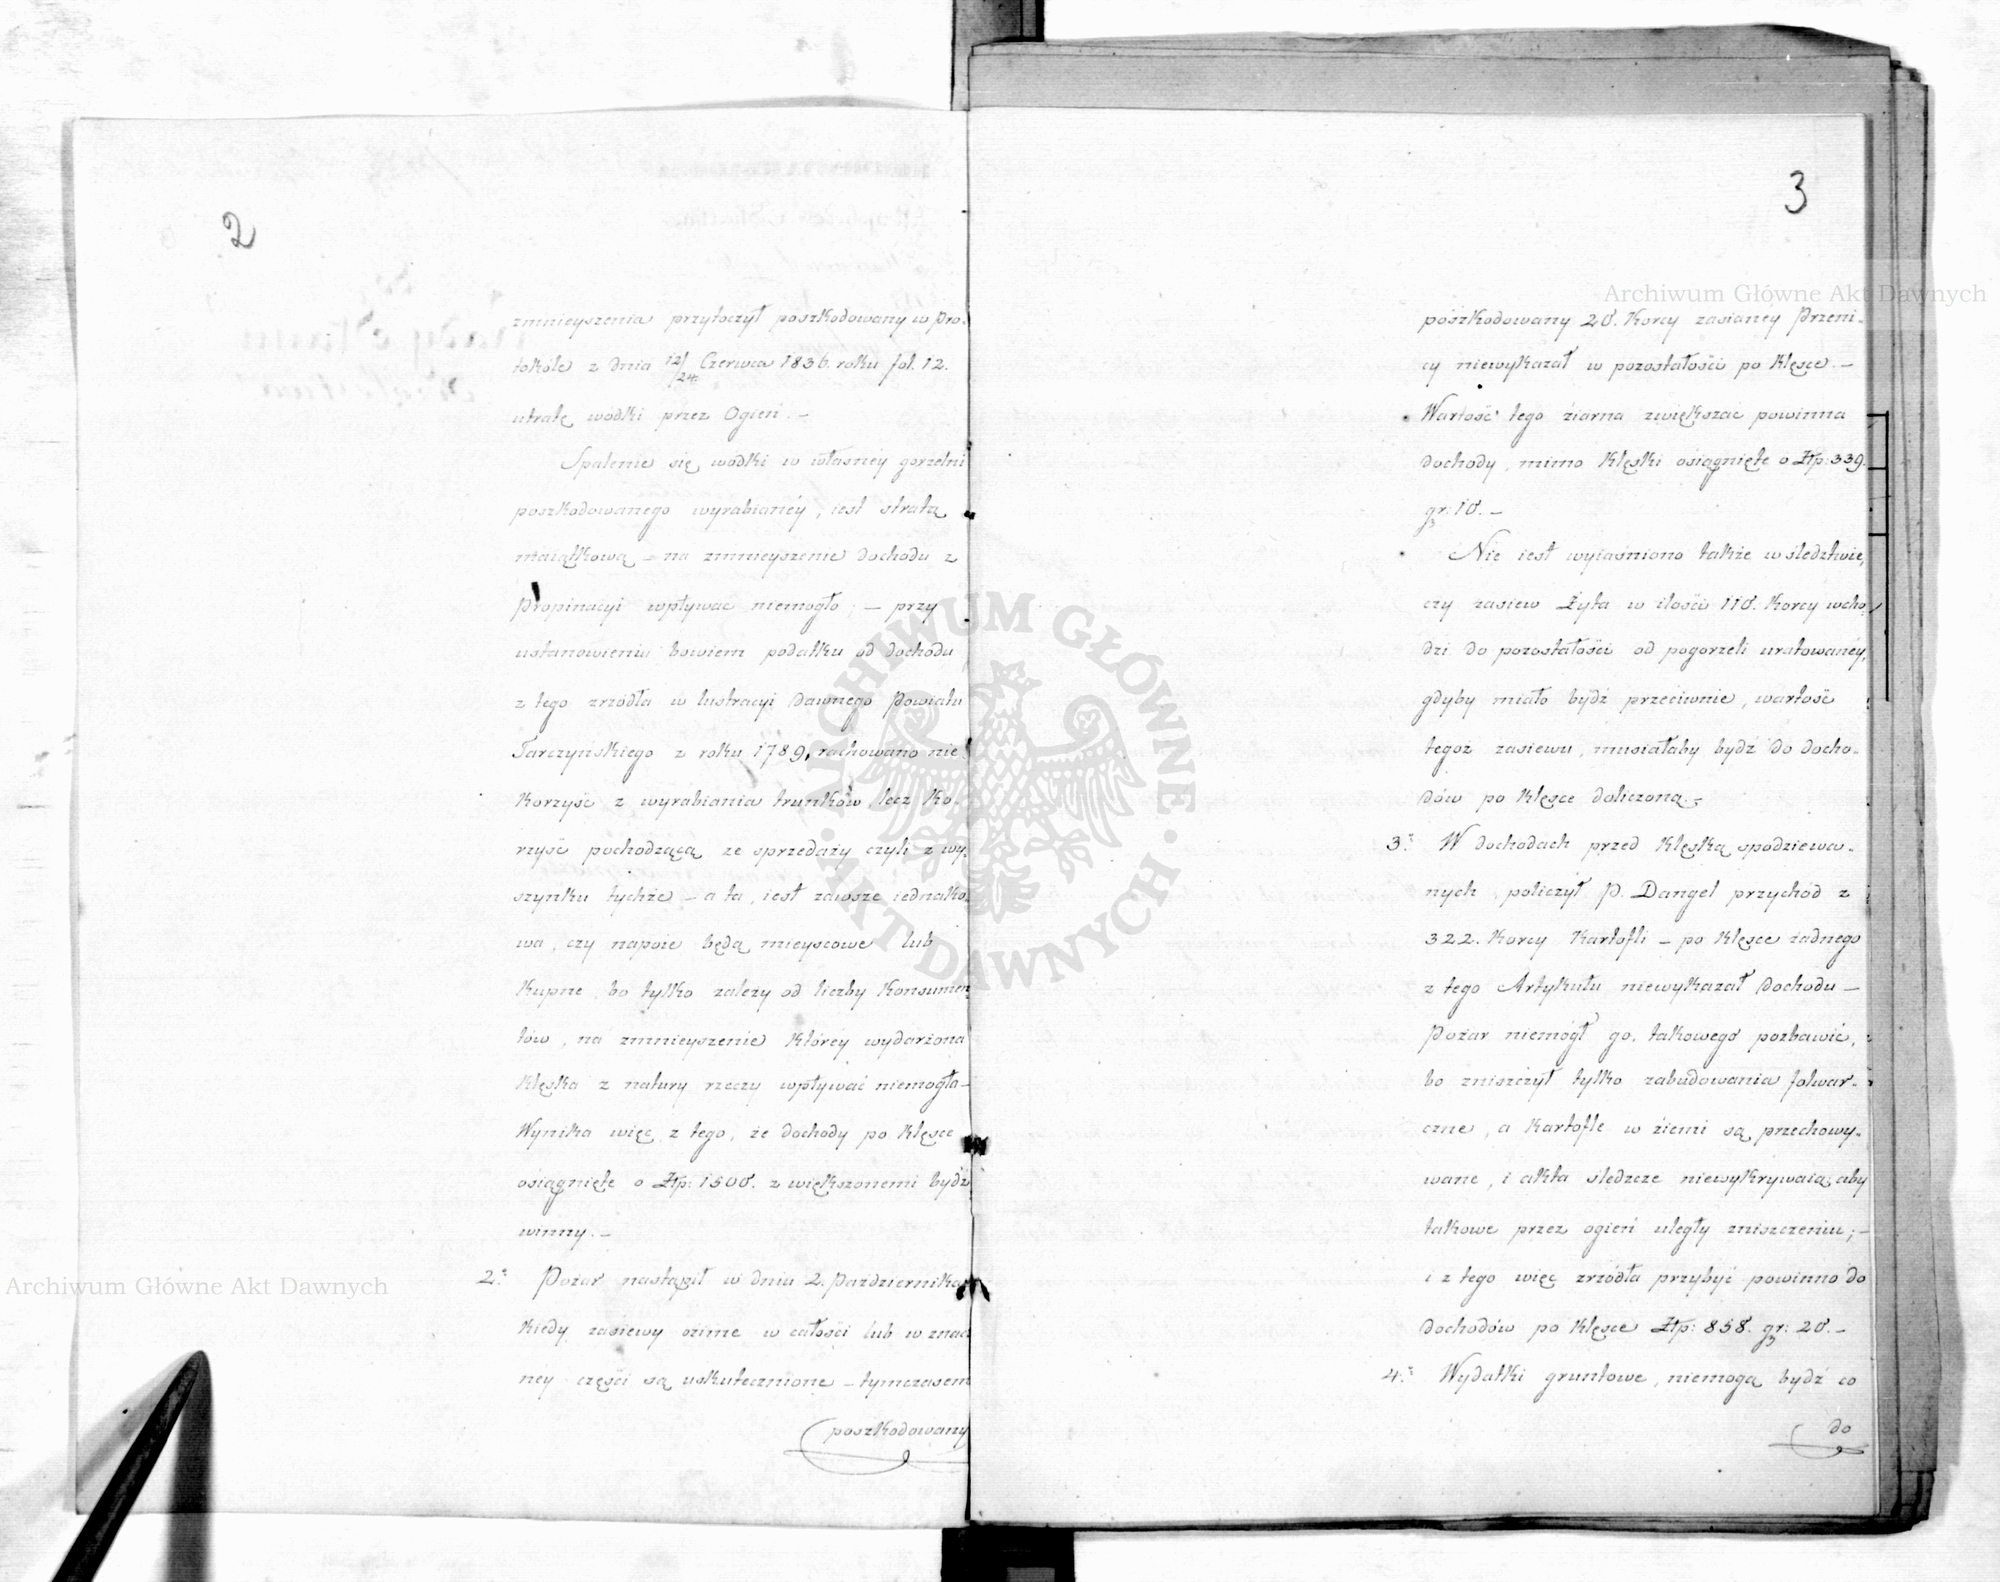 2
zmnieyszenia przytoczył poszkodowany w Pro-
tokóle z dnia 12/24 Czerwca 1836. roku fol. 12.
utratę wodki przez Ogień. –
Spalenie się wodki w własney gorzelni
poszkodowanego wyrabianéy, iest stratą
maiątkową – na zmnieyszenie dochodu z
Propinacyi wpływac niemogło; – przy
ustanowieniu bowiem podatku od dochodu
z tego zrzódła w lustracyi dawnego Powiatu
Tarczyńskiego z roku 1789, rachowano nie
korzyść z wyrabiania trunków, lecz ko-
rzyść pochodzącą ze sprzedaży czyli z wy-
szynku tychże – a ta, iest zawsze iednako-
wa, czy napoie będą mieyscowe lub
kupne, bo tylko zależy od liczby Konsumen-
tów, na zmnieyszenie któréy wydarzona
klęska z natury rzeczy wpływać niemogła –
Wynika więc z tego, że dochody po klęsce
osiągnięte o Złp: 1500. zwiększonemi bydź
winny. –
2. Pożar nastąpił w dniu 2. Października
kiedy zasiewy ozime w całości lub w znacz
ney części są uskutecznione – tymczasem
poszkodowany
3
poszkodowany 20. Korcy zasianey Przeni-
cy niewykazał w pozostałości po klęsce. –
Wartość tego ziarna zwiększac powinna
dochody, mimo klęski osiągnięte o Złp: 339.
gr: 10. –
Nie iest wyiaśniono także w śledztwie,
czy zasiew Żyta w ilości 110. Korcy wcho-
dzi do pozostałości od pogorzeli uratowanéy,
gdyby miało bydź przeciwnie, wartość
tegoż zasiewu, musiałaby bydź do docho-
dów po klęsce doliczoną. –
3. W dochodach przed klęską spodziewa-
nych, policzył P. Dangel przychód z
322. Korcy Kartofli – po klęsce żadnego
z tego Artykułu niewykazał dochodu –
Pożar niemógł go, takowego pozbawić,
bo zniszczył tylko zabudowania folwar-
czne, a Kartofle w ziemi są przechowy-
wane, i akta śledzcze niewykrywaią, aby
takowe przez ogień uległy zniszczeniu; –
i z tego więc zrzódła przybyć powinno do
dochodów po klęsce Złp: 858. gr: 20. –
4. Wydatki gruntowe, niemogą bydź co
do
Archiwum Główne Akt Dawnych
Archiwum Główne Akt Dawnych
ARCHIWUM GŁÓWNE · AKT DAWNYCH ·